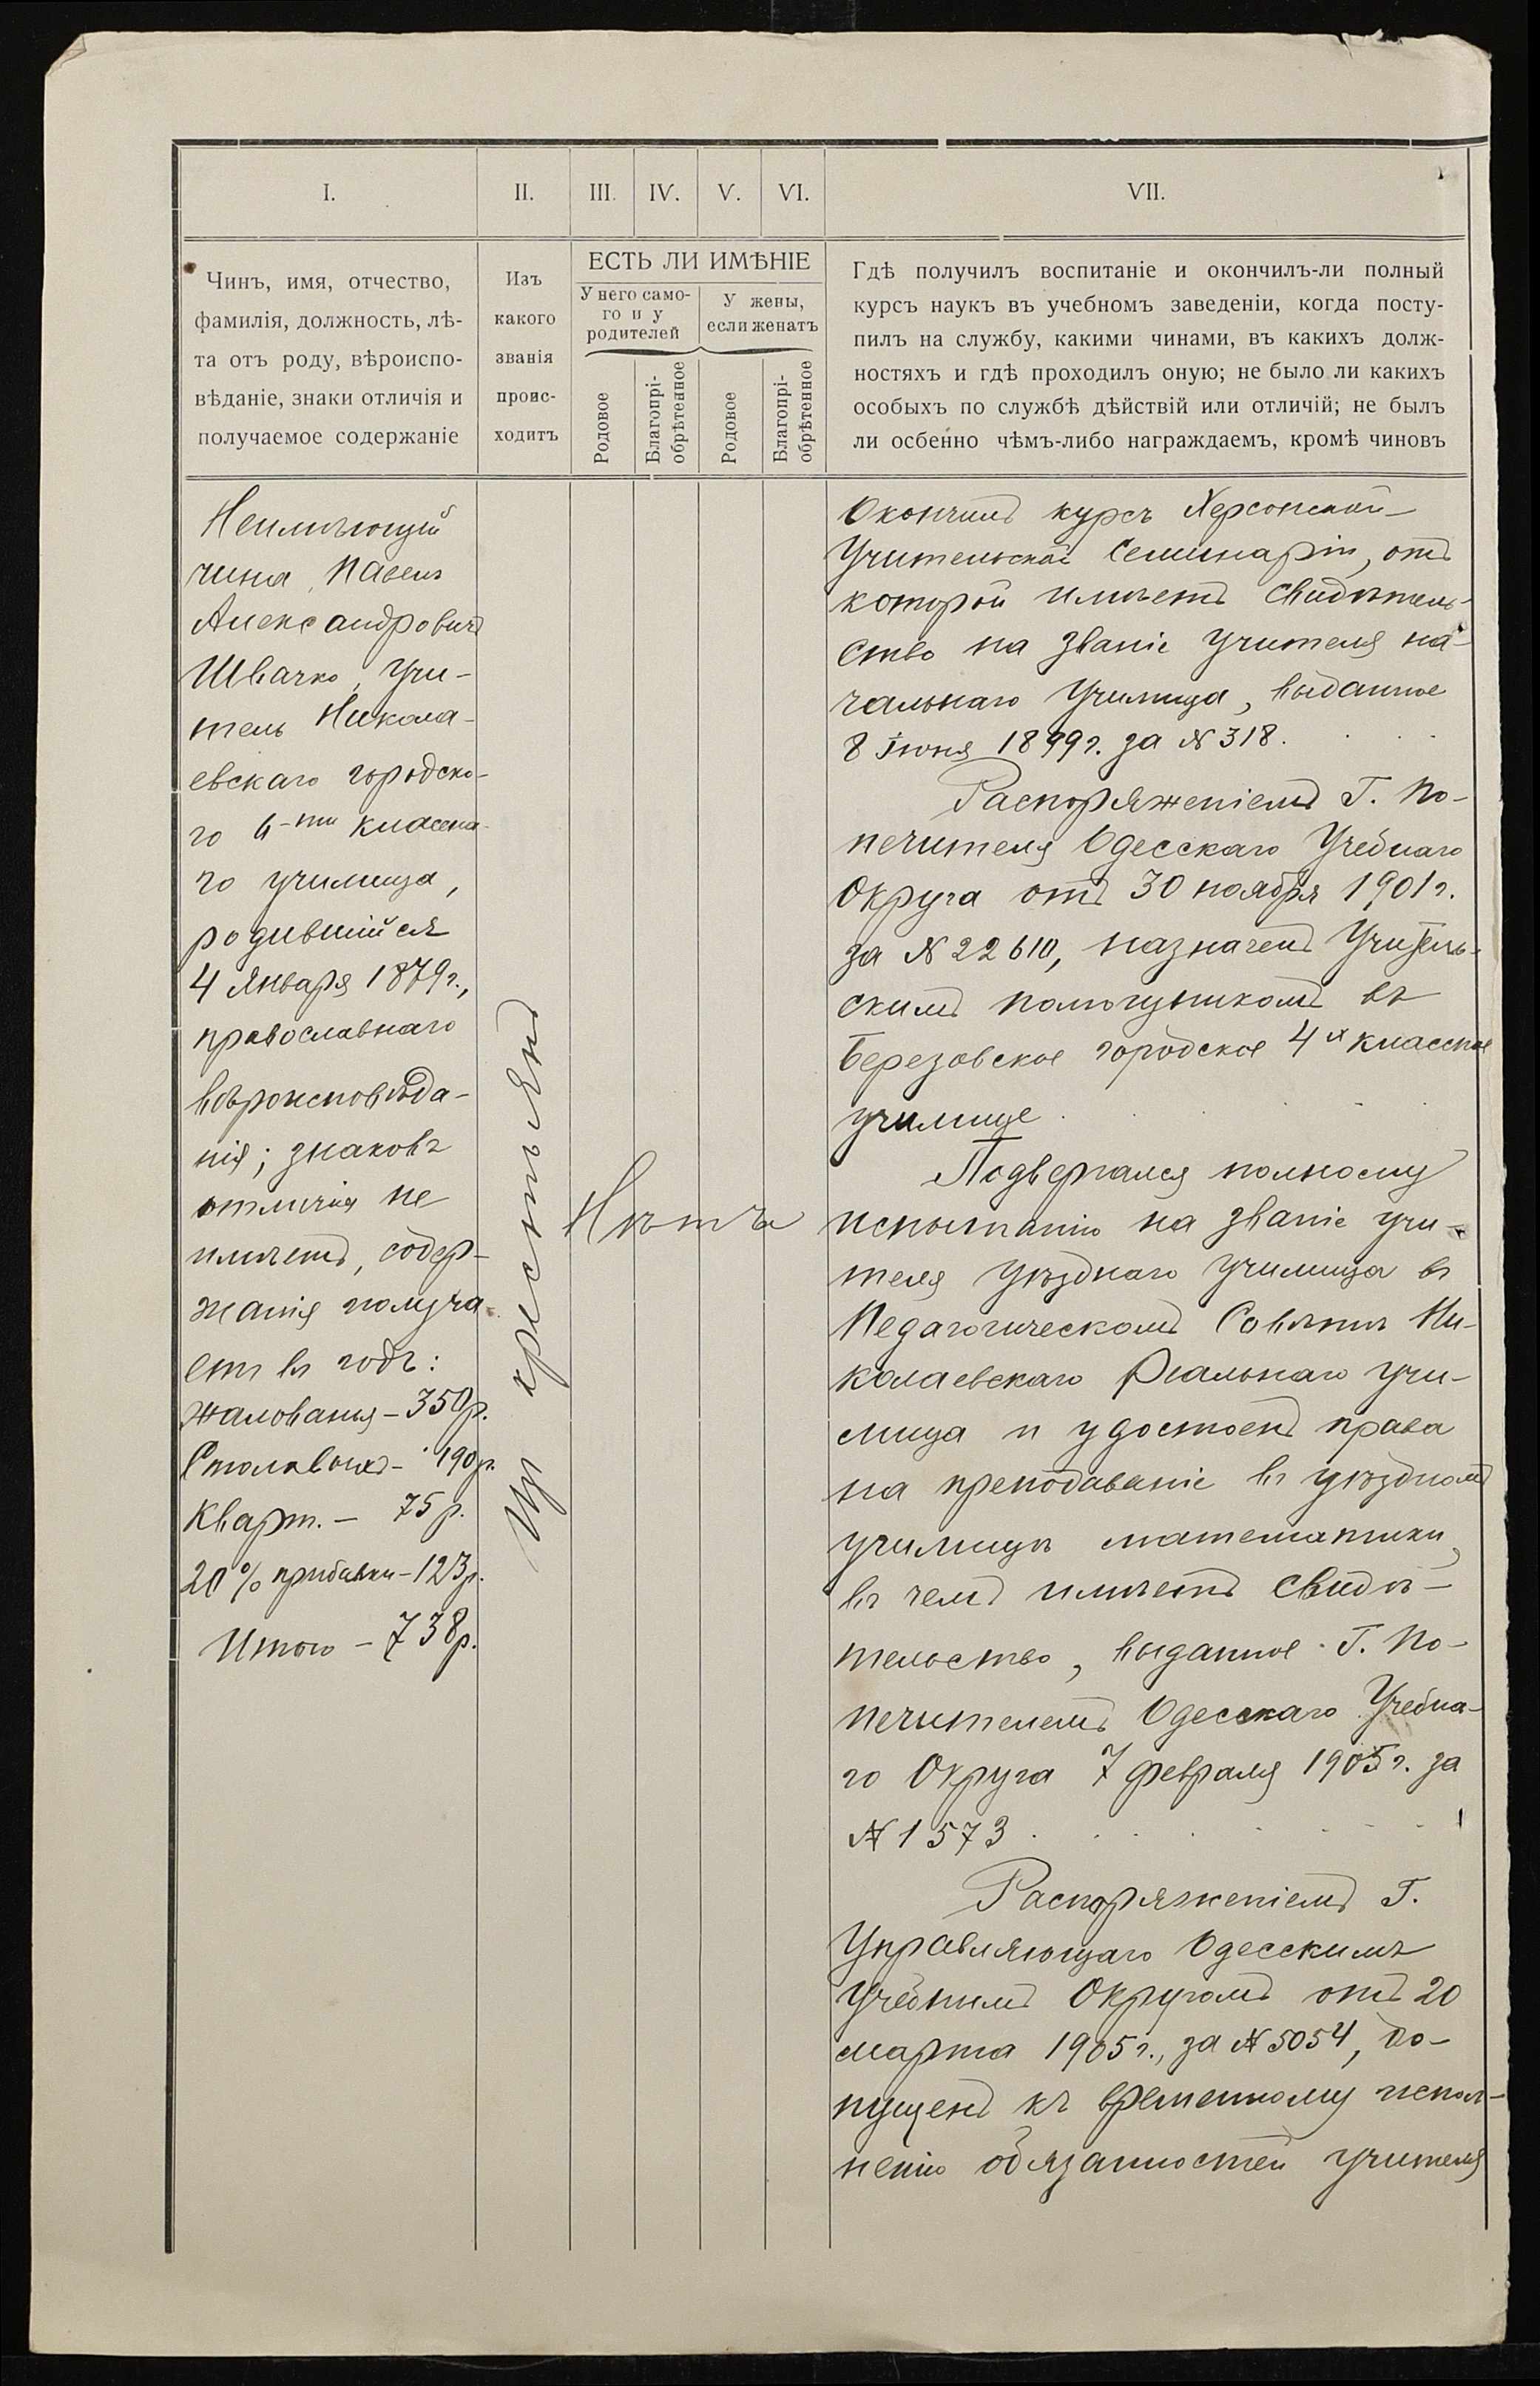 I.
II.
III.
IV.
V.
VI.
VII.
Чинъ, имя, отчество,
фамилія, должность, лѣ-
та отъ роду, вѣроиспо-
вѣданіе, знаки отличія и
получаемое содержаніе
Изъ
какого
званія
проис-
ходитъ
ЕСТЬ ЛИ ИМѢНІЕ
У него само-
го и у
родителей
У жены,
если женатъ
Родовое
Благопрі-
обрѣтенное
Родовое
Благопрі-
обрѣтенное
Гдѣ получилъ воспитаніе и окончилъ-ли полный
курсъ наукъ въ учебномъ заведеніи, когда посту-
пилъ на службу, какими чинами, въ какихъ долж-
ностяхъ и гдѣ проходилъ оную; не было ли какихъ
особыхъ по службѣ дѣйствій или отличій; не былъ
ли осбенно чѣмъ-либо награждаемъ, кромѣ чиновъ
Неимѣющій
чина, Павелъ
Александровичъ
Швачко, учи-
тель Никола-
евскаго городско-
го 6-ти классна-
го училища,
родившійся
4 Января 1879 г.,
православнаго
вѣроисповѣда-
нія; знаковъ
отличія не
имѣетъ, содер-
жанія получа-
етъ въ годъ:
Жалованья – 350 р.
Столовыхъ – 190 р.
Кварт. – 75 р.
20 % прибавки – 123 р.
Итого – 738 р.
Из крестьянъ
Нѣтъ
Окончилъ курсъ Херсонской
Учительской Семинаріи, отъ
которой имѣетъ свидѣтель-
ство на званіе Учителя на-
чальнаго Училища, выданное
8 Іюня 1899 г. за № 318.
Распоряженіемъ Г. По-
печителя Одесскаго Учебнаго
Округа отъ 30 ноября 1901 г.
за № 22610, назначенъ Учитель-
скимъ помощникомъ въ
Березовское городское 4х классное
училище
Подвергался полному
испытанію на званіе учи-
теля уѣзднаго училища въ
Педагогическомъ Совѣтѣ Ни-
колаевскаго Реальнаго Учи-
лища и удостоенъ права
на преподаваніе въ уѣздномъ
училищѣ математики,
въ чемъ имѣетъ свидѣ-
тельство, выданное Г. По-
печителемъ Одесскаго Учебна-
го Округа 7 февраля 1905 г. за
№ 1573
Распоряженіемъ Г.
Управляющаго Одесскимъ
Учебнымъ Округомъ отъ 20
марта 1905 г., за № 5054, до-
пущенъ къ временному испол-
ненію обязанностей учителя